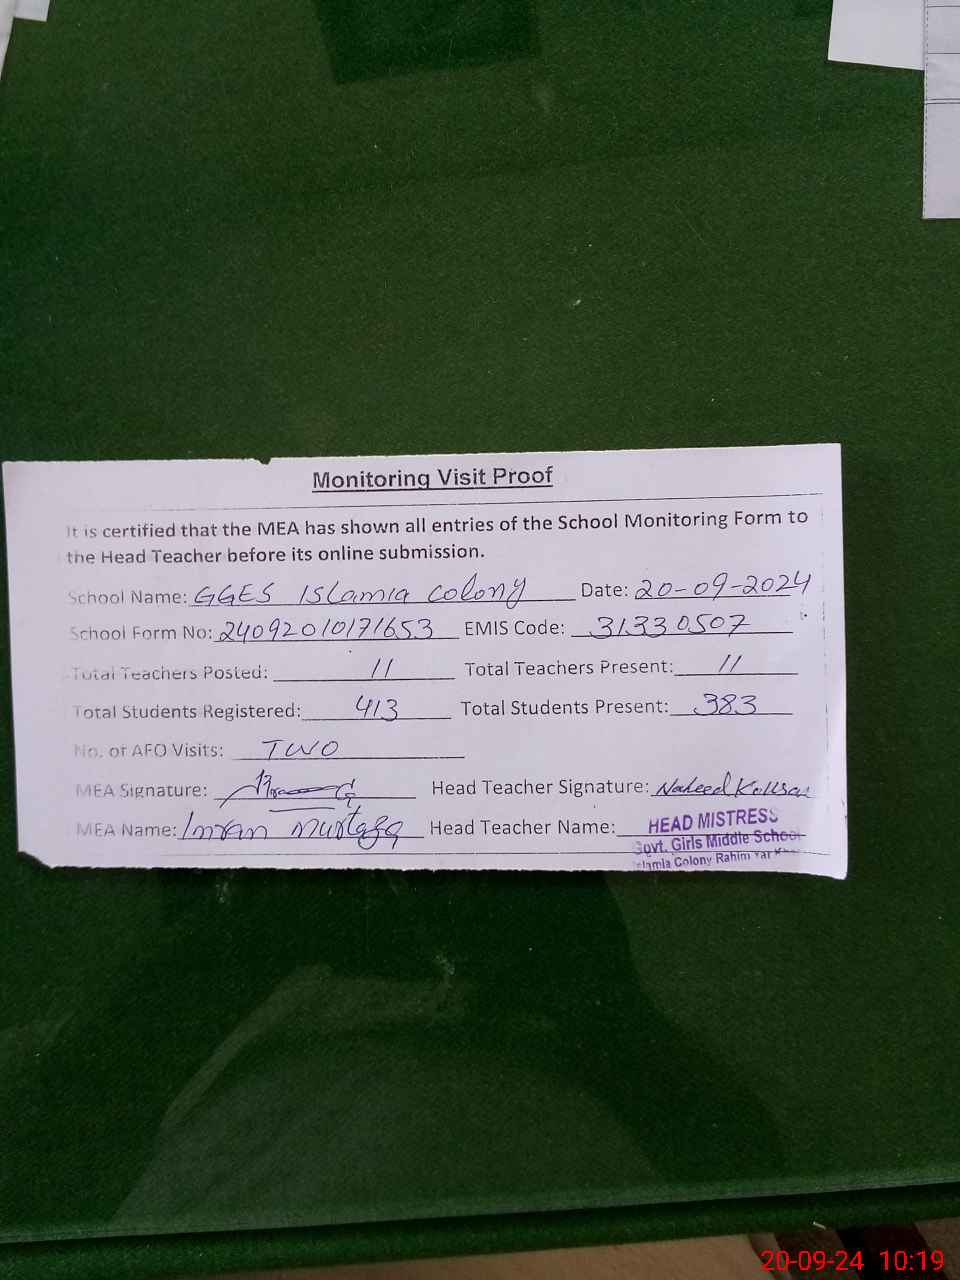 Monitoring Visit Proof
It is certified that the MEA has shown all entries of the School Monitoring Form to
the Head Teacher before its online submission.
School Name: GGES Islamia Colony Date: 20-09-2024
School Form No: 24092010171653 EMIS Code: 31330507
Total Teachers Posted: 11 Total Teachers Present: 11
Total Students Registered: 413 Total Students Present: 383
No. of AEO Visits: TWO
MEA Signature: Head Teacher Signature: Naheed Kousar
MEA Name: Imran Murtaza Head Teacher Name: HEAD MISTRESS
Govt. Girls Middle School
Islamia Colony Rahim Yar Khan
20-09-24 10:19